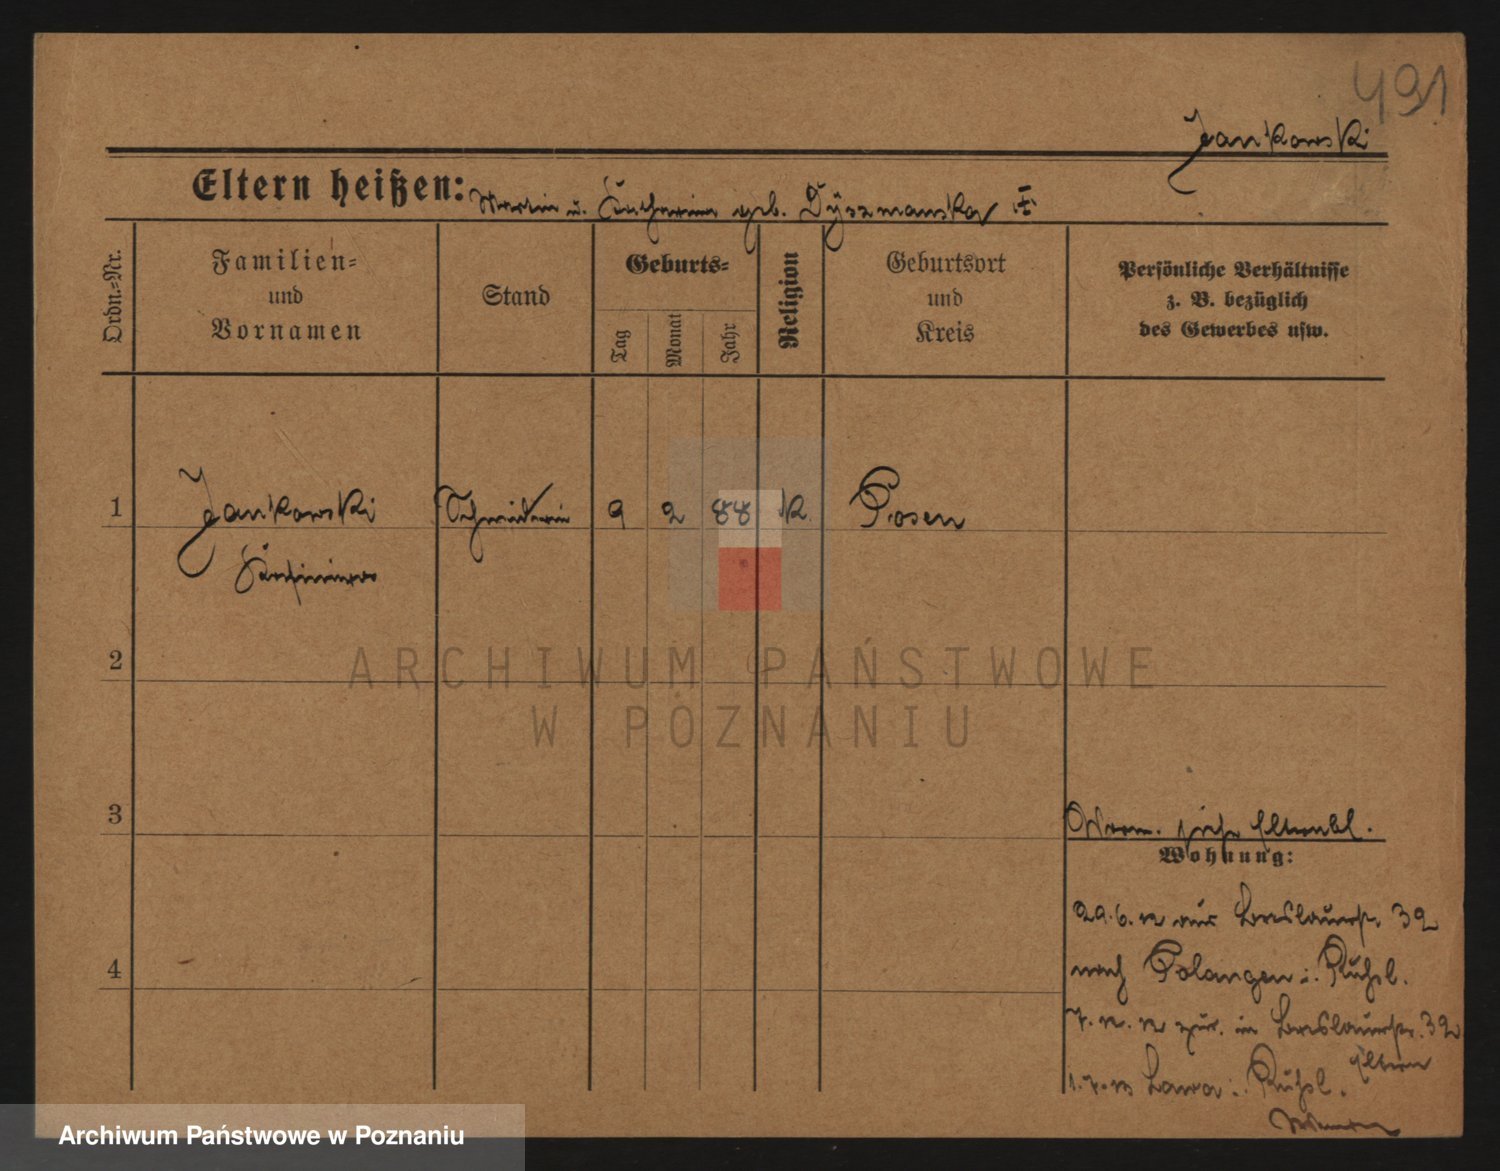 491
Jankowski
Eltern heißen: Martin u. Katharina geb. Dyszmanska
Ordn.-Nr.
Familien-
und
Vornamen
Stand
Geburts-
Tag
Monat
Jahr
Religion
Geburtsort
und
Kreis
Persönliche Verhältnisse
z. B. bezüglich
des Gewerbes usw.
1 Jankowski Schneiderin 9 2 88 K. Posen
2
3
4
siehe Elternbl.
Wohnung:
29.6.12 aus Breslauerstr. 39
nach Polangen i. Rußl.
7. 12. 12 zur. in Breslauerstr. 39
Eltern
1.7.13 i. Rußl.
ARCHIWUM PAŃSTWOWE
W POZNANIU
Archiwum Państwowe w Poznaniu